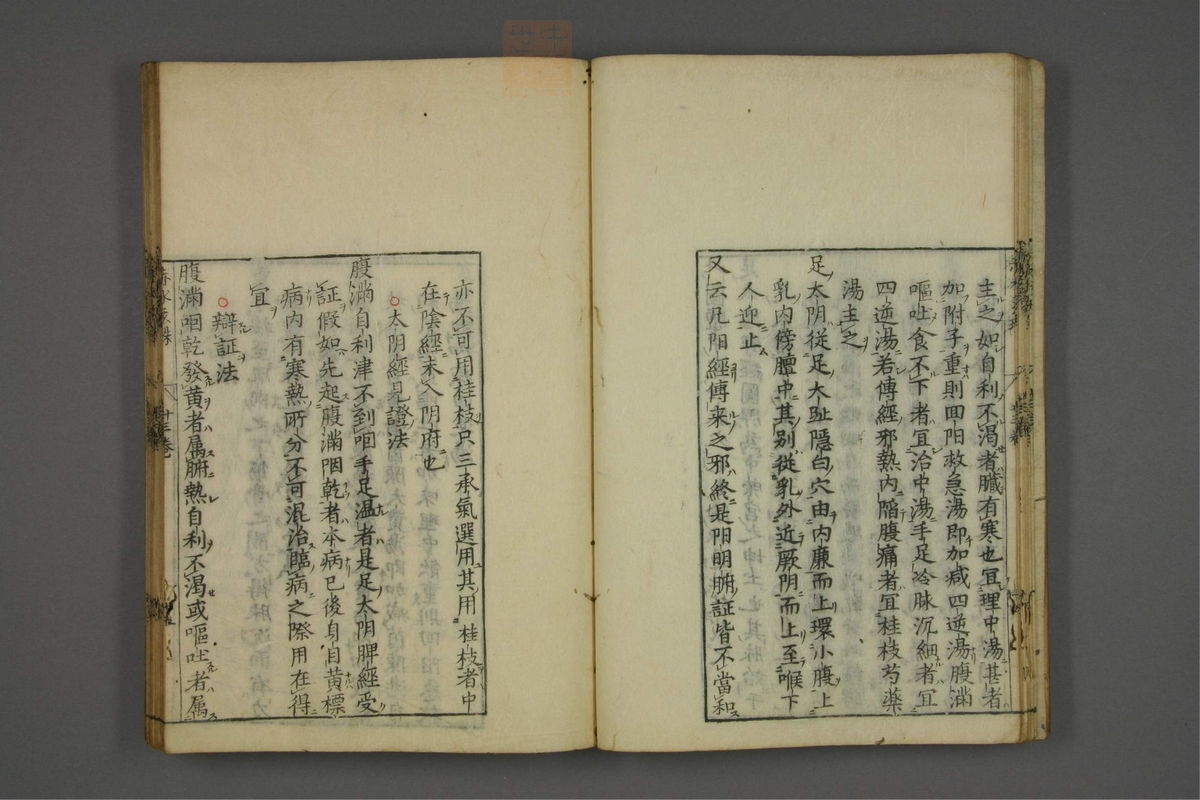 主之如自利不渴者臓有寒也宜理中湯甚者
加附子重則囬阳救急湯即加减四逆湯腹滿
嘔吐食不下者宜治中湯手足冷脉沉細者宜
四逆湯若傳經邪熱内陷腹痛者宜桂枝芍藥
湯主之
足太阴從足大趾隠白穴由内廉而上環小腹上
乳内傍膻中其别從乳外近厥阴而上至喉下
人迎止
又云凡阳經傳来之邪終是阳明腑証皆不當和
亦不可用桂枝只三承氣選用其用桂枝者中
在陰經未入阴府也
○太阴經見證法
腹滿自利津不到咽手足温者是足太阴脾經受
証假如先起腹滿咽乾者本病已後身目黄標
病内有寒熱所分不可混治臨病之際用在得
宜
○辯証法
腹滿咽乾發黄者属腑熱自利不渴或嘔吐者属
十三巻